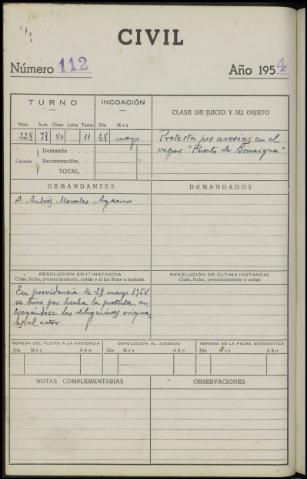 CIVIL
Número 112
Año 1954
TURNO
INCOACIÓN
CLASE DE JUICIO Y SU OBJETO
Núm. Acta Clase Letra Turno Día Mes
228 11 28 mayo
Protesta por averías en el
vapor "Puerto de Bonaigua"
Demanda
Cuantía Reconvención
TOTAL
DEMANDANTES
DEMANDADOS
D. Andrés Morales
RESOLUCIÓN EN 1.ª INSTANCIA
(Clase, fecha, pronunciamiento, costas y si las firmes o apelada)
RESOLUCIÓN DE ÚLTIMA INSTANCIA
(Clase, fecha, pronunciamientos y costas)
En providencia de 29 mayo 1954
se tuvo por hecha la protesta, en
tregándose las diligencias origina
les al actor
REMESA DEL PLEITO A LA AUDIENCIA
DEVOLUCIÓN AL JUZGADO
REMESA DE LA FICHA ESTADÍSTICA
Día Mes Año
Día Mes Año
Día Mes Año
NOTAS COMPLEMENTARIAS
OBSERVACIONES